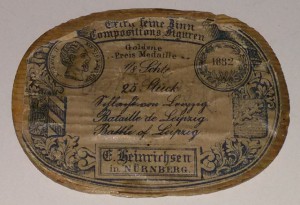 Extra feine Zinn
Compositions Figuren
Goldene
Preis Medaille
1852
25 Stück
Schlacht von Leipzig
Bataille de Leipzig
Battle of Leipzig
E. Heinrichsen
in NÜRNBERG.